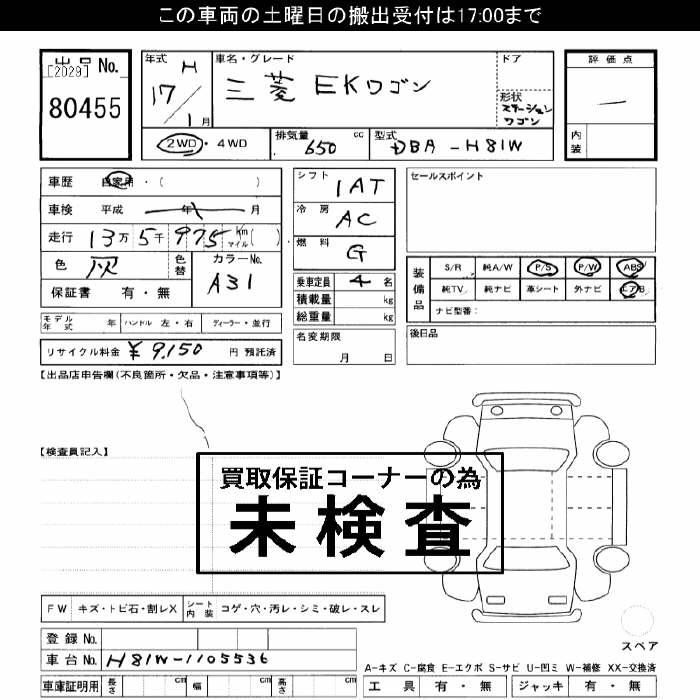 この車両の土曜日の搬出受付は17:00まで
出品 No.
[2029]
80455
年式 H 17/1月
車名・グレード 三菱 EKワゴン
ドア
形状 ステーションワゴン
評価点
—
内装
2WD・4WD
排気量 650 cc
型式 DBA-H81W
車歴 自家用・( )
車検 平成 年 月
走行 13万5千975 km マイル( )
色 灰
色替
カラーNo. A31
保証書 有・無
シフト IAT
冷房 AC
燃料 G
乗車定員 4 名
積載量 kg
総重量 kg
セールスポイント
装備品
S/R 純A/W P/S P/W ABS
純TV 純ナビ 革シート 外ナビ エアB
ナビ型番:
モデル年式 年 ハンドル 左・右 ディーラー・並行
名変期限 月 日
後日品
リサイクル料金 ¥9,150 円 預託済
【出品店申告欄(不良箇所・欠品・注意事項等)】
【検査員記入】
買取保証コーナーの為
未検査
FW キズ・トビ石・割レX
シート内装 コゲ・穴・汚レ・シミ・破レ・スレ
スペア
登録 No.
車台 No. H81W-1105536
A-キズ C-腐食 E-エクボ S-サビ U-凹ミ W-補修 XX-交換済
車庫証明用 長さ cm 幅 cm 高さ cm
工具 有・無 ジャッキ 有・無